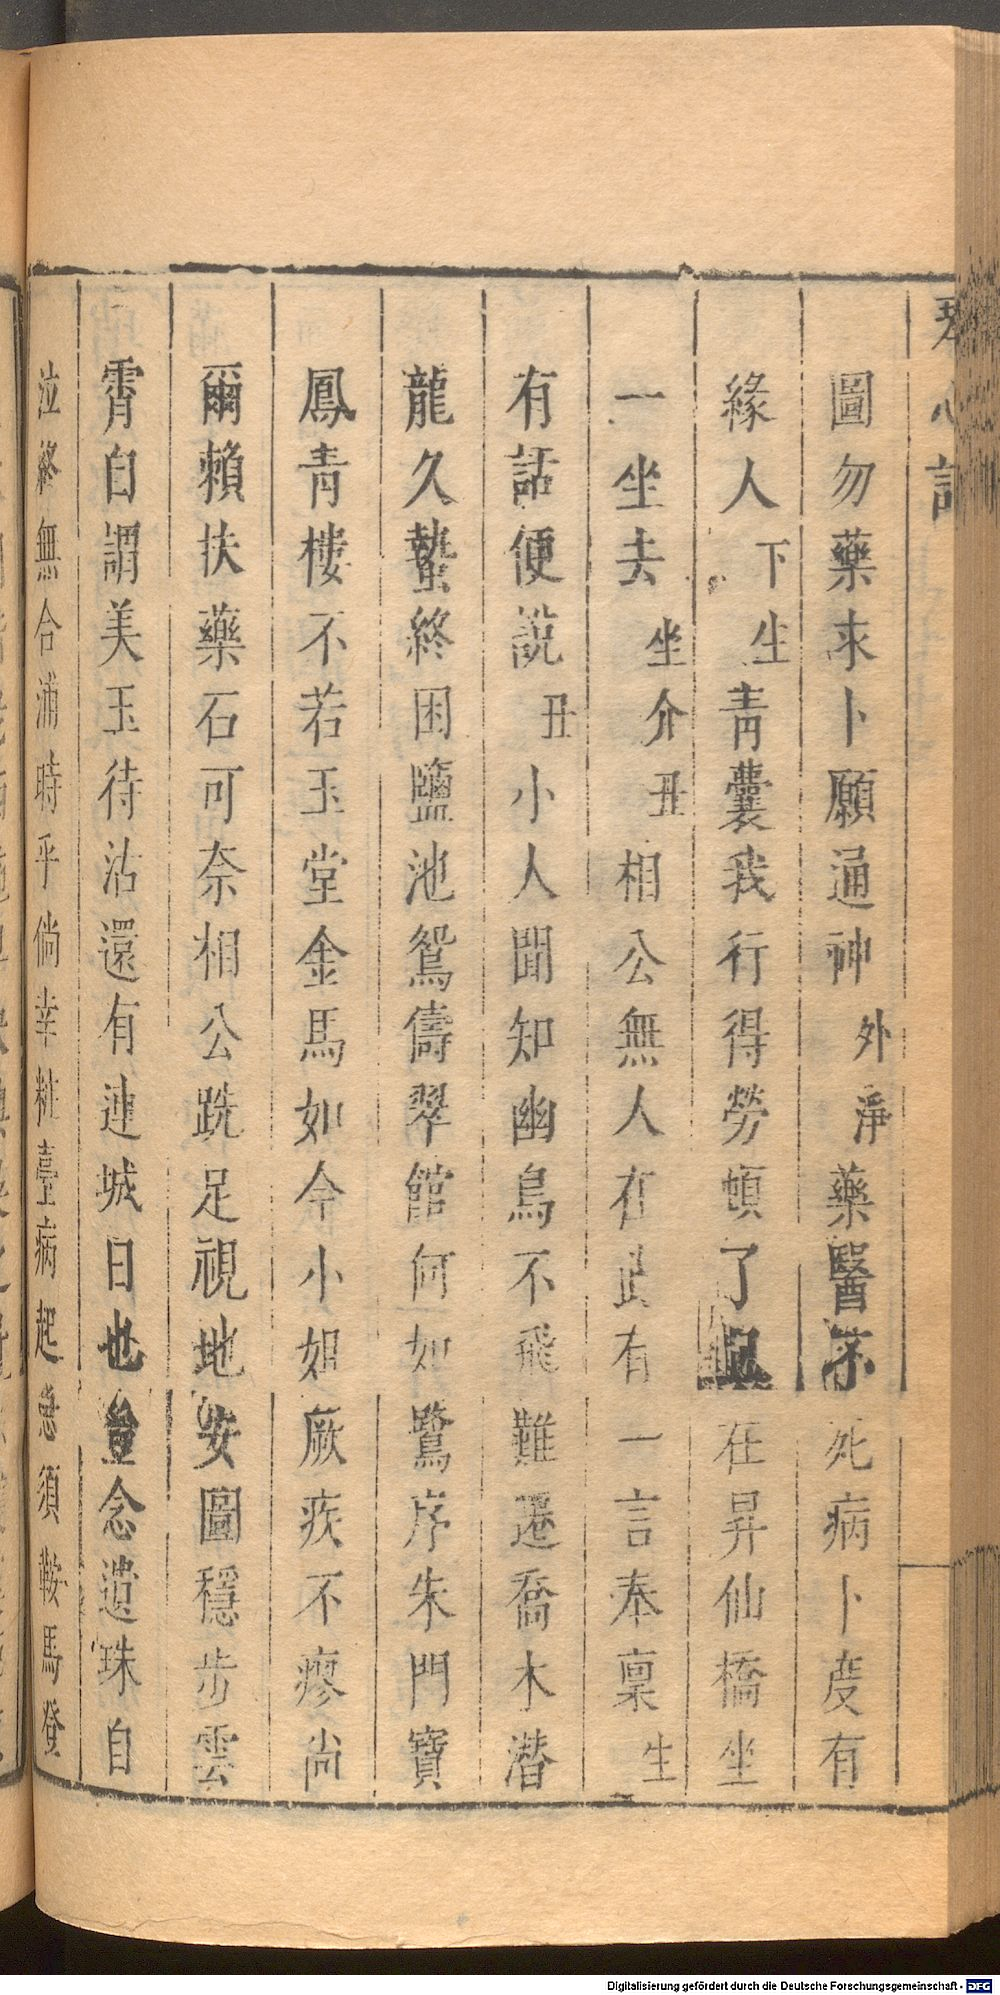 琴心記
圖勿藥求卜願通神外淨藥醫不死病卜度有
緣人下生青囊我行得勞頓了在昇仙橋坐
一坐去坐介丑相公無人在此有一言奉稟生
有話便說丑小人聞知幽鳥不飛難遷喬木潛
龍久蟄終困鹽池鴛儔翠館何如鷺序朱門寶
鳳青樓不若玉堂金馬如今小姐厥疾不瘳尚
爾賴扶藥石可奈相公跣足視地安圖穩步雲
霄自謂美玉待沽還有連城日也豈念遺珠自
泣終無合浦時乎倘幸粧臺病起急須鞍馬登
Digitalisierung gefördert durch die Deutsche Forschungsgemeinschaft - DFG